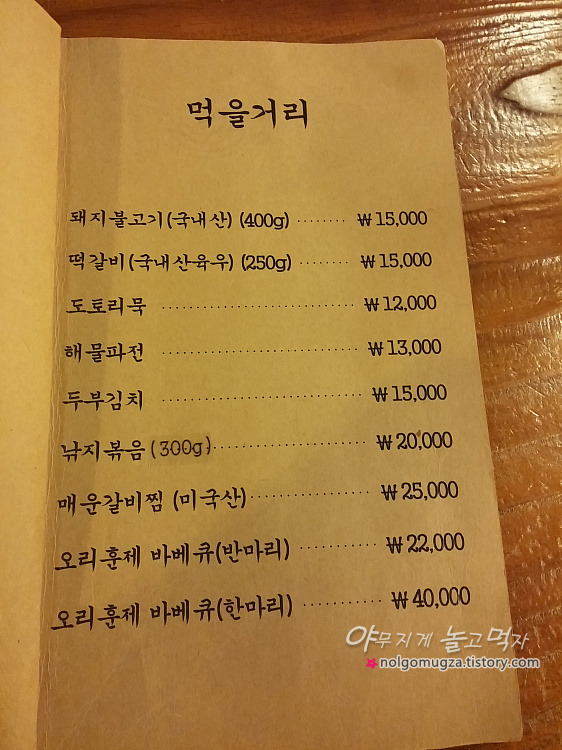 먹을거리
돼지불고기(국내산) (400g) ········ ₩ 15,000
떡갈비(국내산육우) (250g) ········ ₩ 15,000
도토리묵 ······························ ₩ 12,000
해물파전 ······························ ₩ 13,000
두부김치 ······························ ₩ 15,000
낚지볶음(300g)························ ₩ 20,000
매운갈비찜 (미국산)·················· ₩ 25,000
오리훈제 바베큐(반마리) ············ ₩ 22,000
오리훈제 바베큐(한마리) ············ ₩ 40,000
야무지게 놀고먹자
nolgomugza.tistory.com